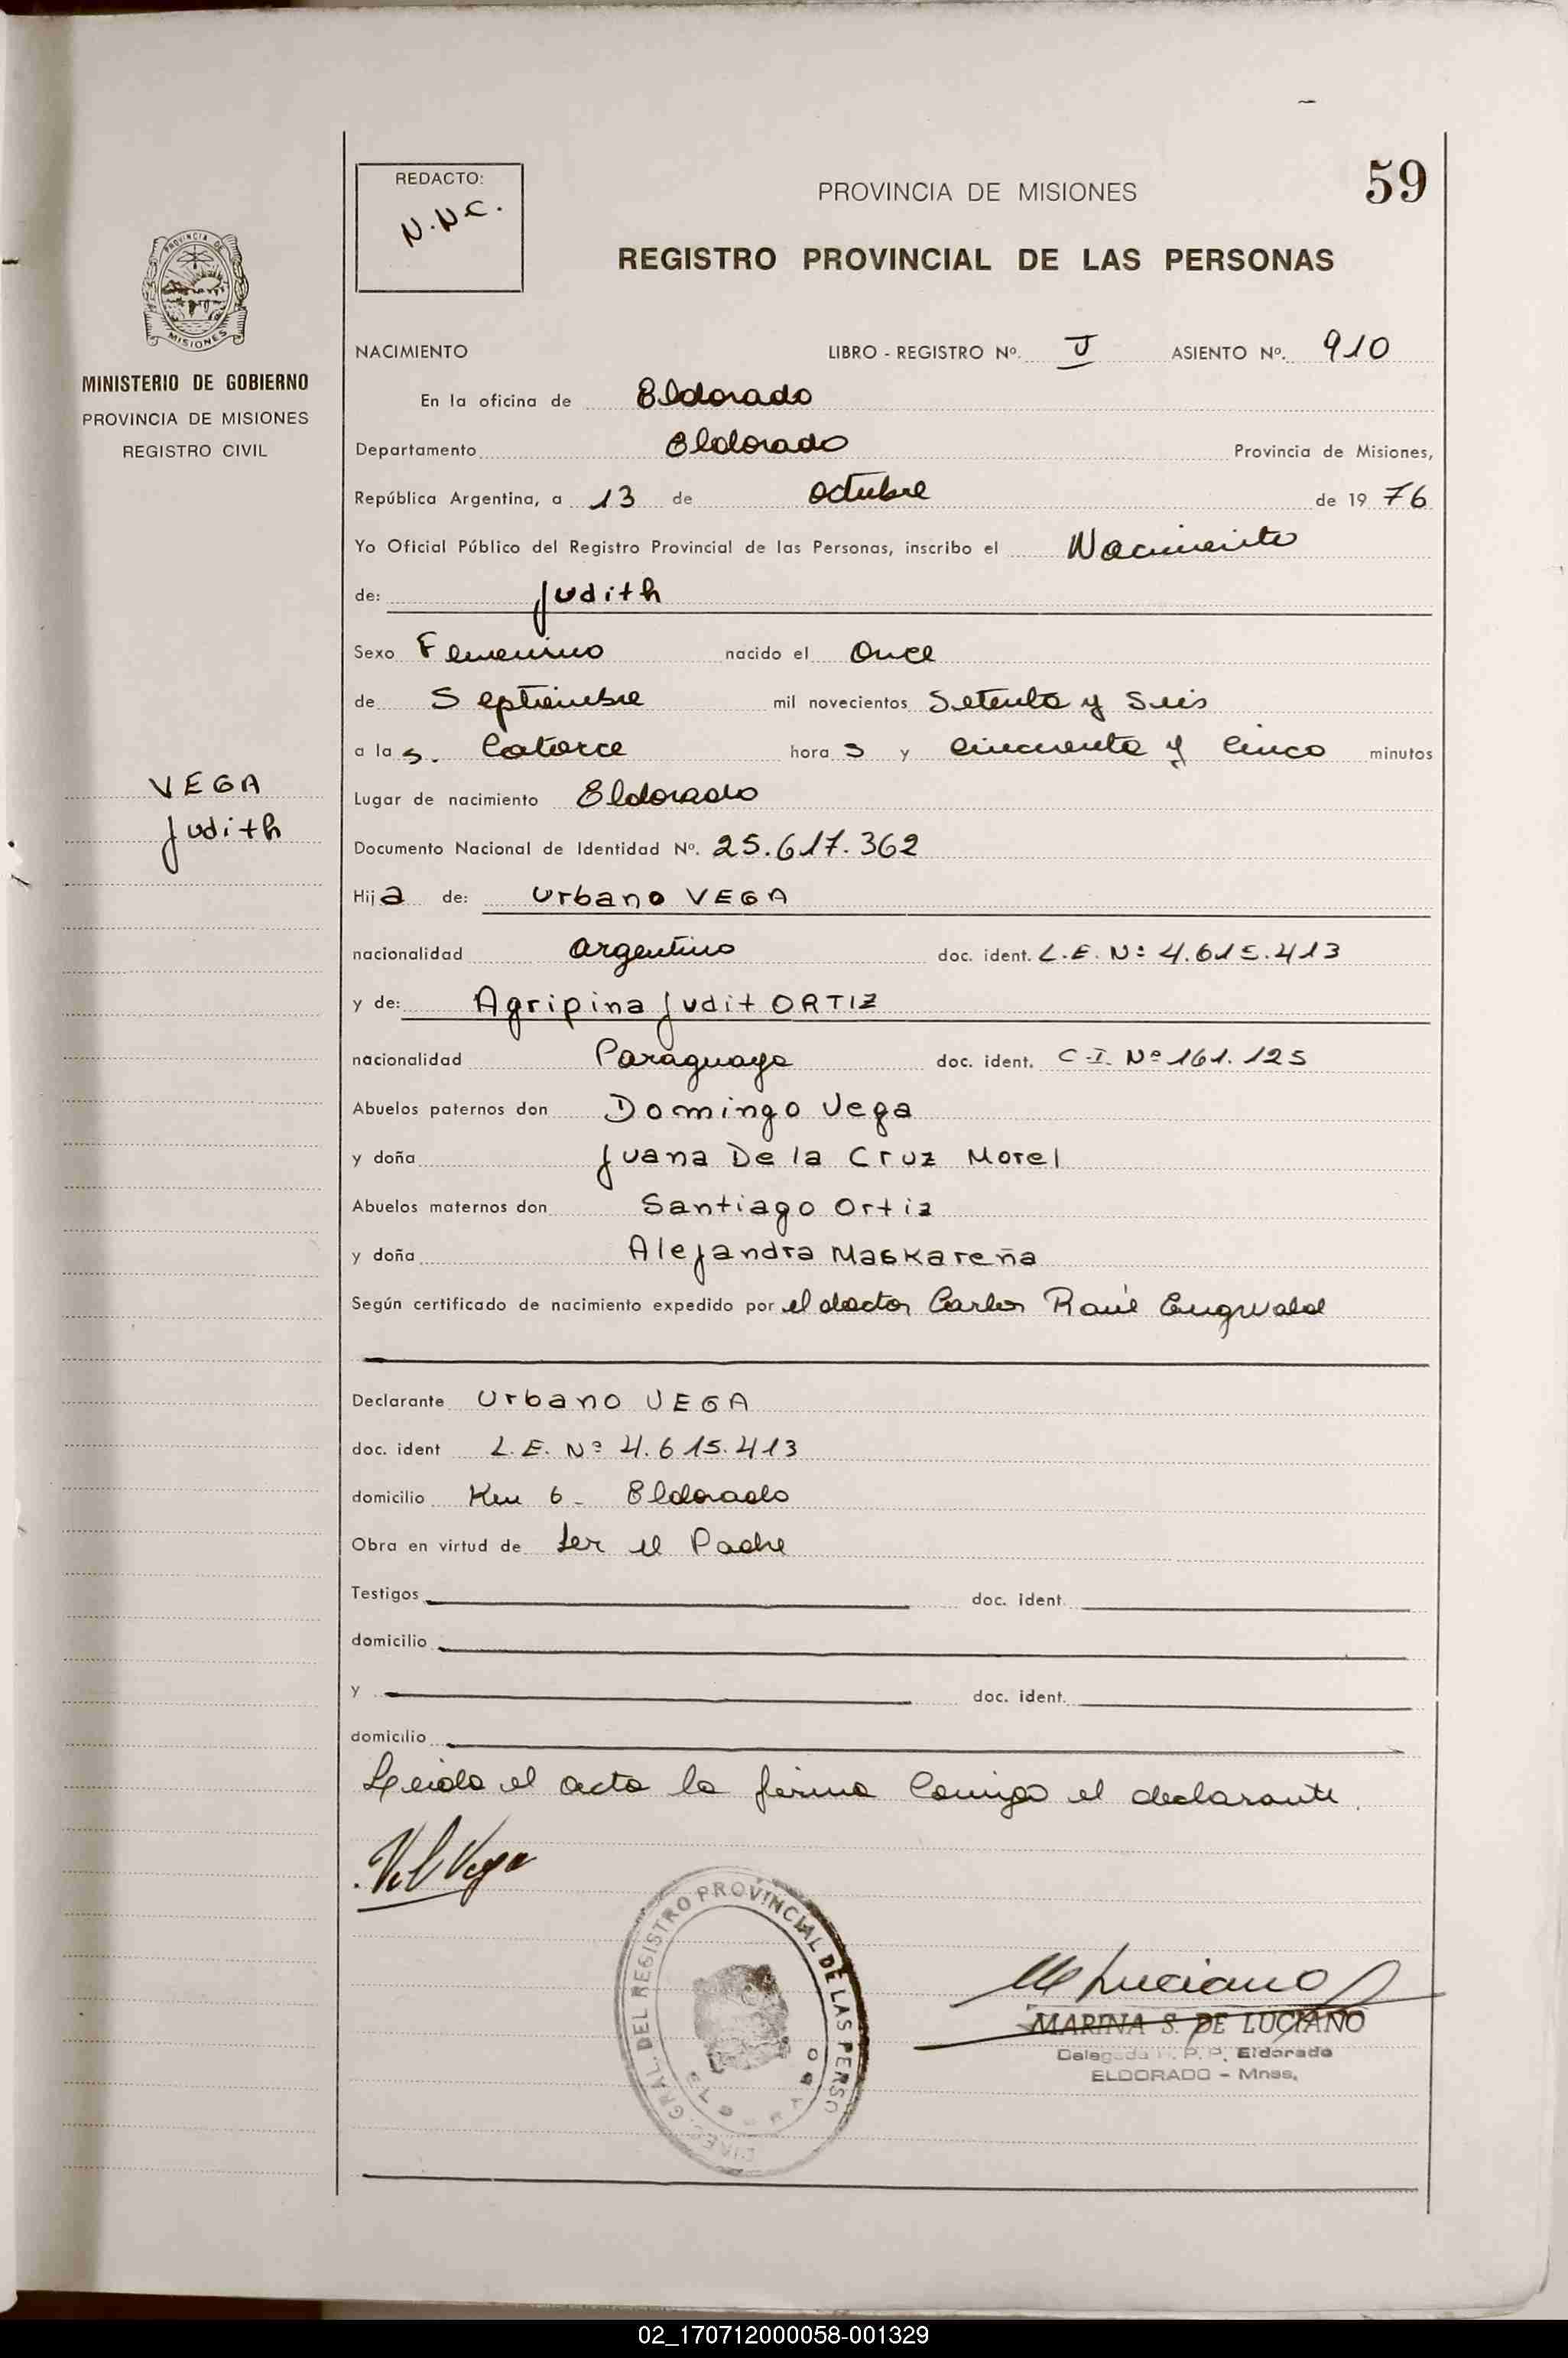 59
REDACTO:
N.N.C.
PROVINCIA DE MISIONES
REGISTRO PROVINCIAL DE LAS PERSONAS
PROVINCIA DE
MISIONES
MINISTERIO DE GOBIERNO
PROVINCIA DE MISIONES
REGISTRO CIVIL
VEGA
Judith
NACIMIENTO LIBRO - REGISTRO Nº. ASIENTO Nº. 910
En la oficina de Eldorado
Departamento Eldorado Provincia de Misiones,
República Argentina, a 13 de octubre de 19 76
Yo Oficial Público del Registro Provincial de las Personas, inscribo el Nacimiento
de: Judith
Sexo Femenino nacido el Once
de Septiembre mil novecientos Setenta y Seis
a las. Catorce hora s y Cincuenta y Cinco minutos
Lugar de nacimiento Eldorado
Documento Nacional de Identidad Nº. 25.617.362
Hija de: Urbano VEGA
nacionalidad argentino doc. ident. L.E. Nº 4.615.413
y de: Agripina Judit ORTIZ
nacionalidad Paraguaya doc. ident. C.I. Nº 161.125
Abuelos paternos don Domingo Vega
y doña Juana De la Cruz Morel
Abuelos maternos don Santiago Ortiz
y doña Alejandra Maskareña
Según certificado de nacimiento expedido por el doctor Carlos Raúl Engwald
Declarante Urbano VEGA
doc. ident L.E. Nº 4.615.413
domicilio Km 6 - Eldorado
Obra en virtud de ser el Padre
Testigos doc. ident.
domicilio
y doc. ident.
domicilio
Leida el acta la firma Conmigo el declarante.
Vega
DIREC. GRAL. DEL REGISTRO PROVINCIAL DE LAS PERSO
M Luciano
MARINA S. DE LUCIANO
Delegada R. P. P. Eldorado
ELDORADO - Mnes.
02_170712000058-001329